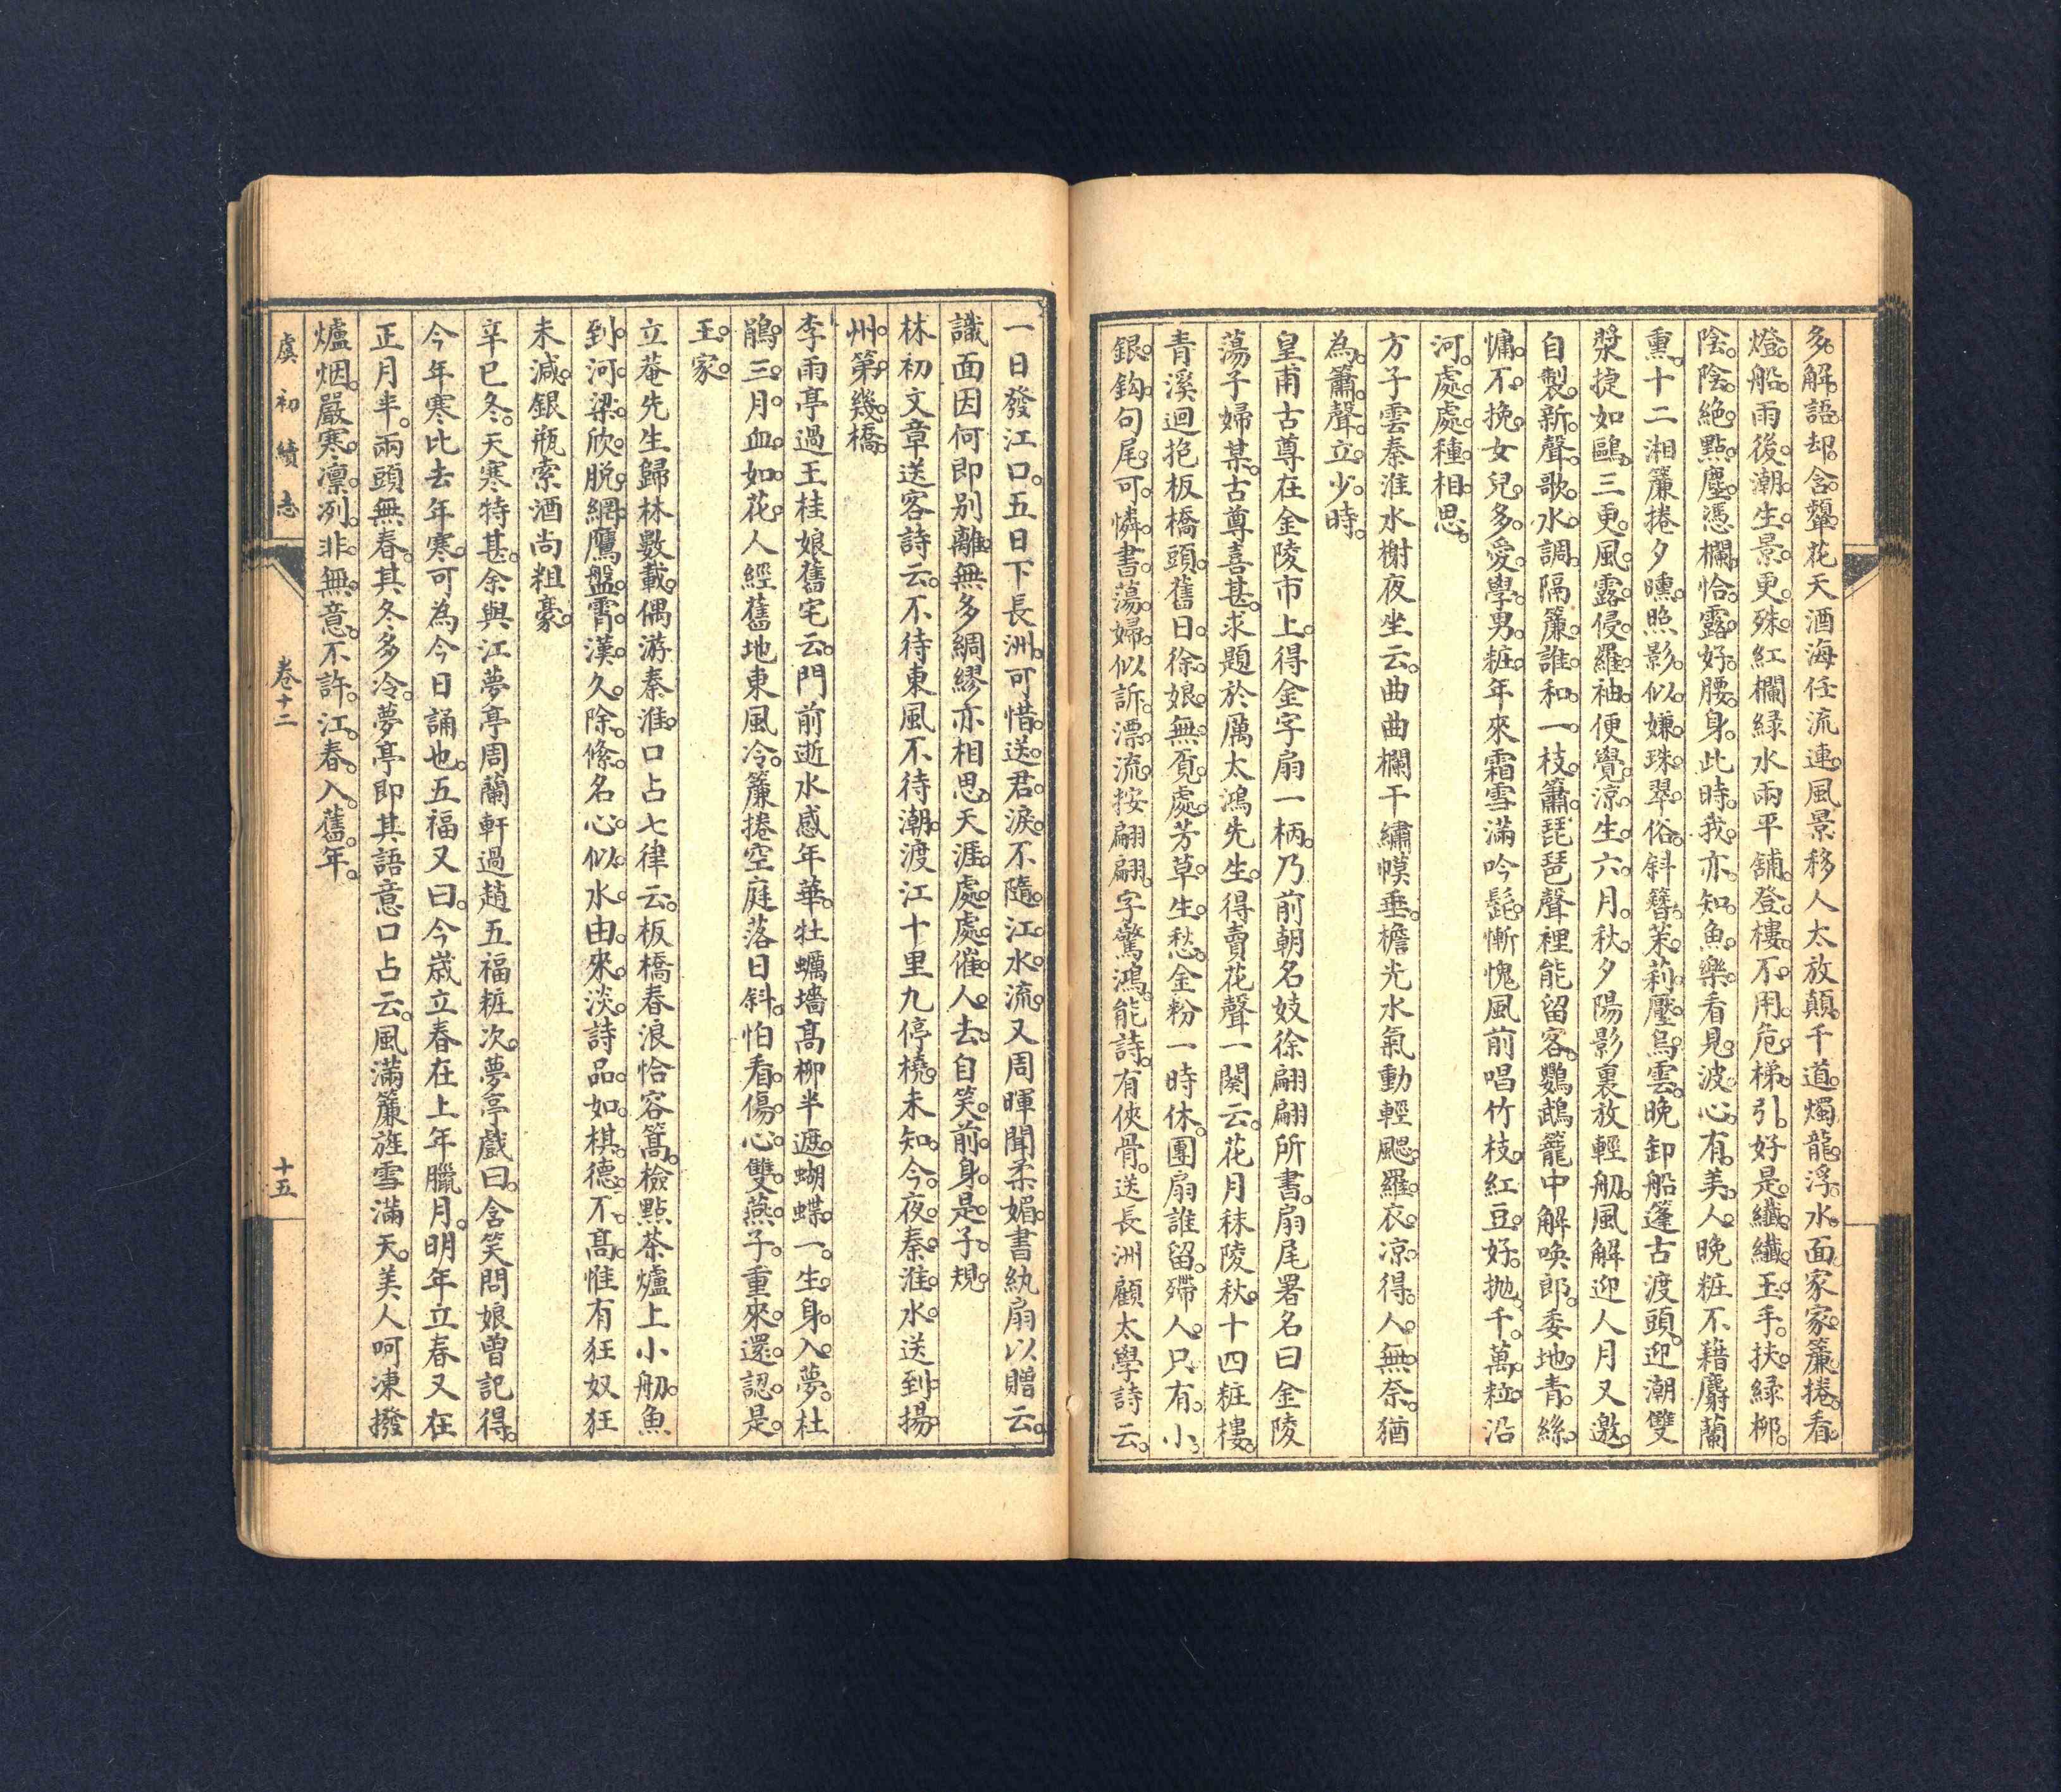 多解語却含顰花天酒海任流連風景移人太放顛千道燭龍浮水面家家簾捲看
燈船雨後潮生景更殊紅欄緑水兩平舖登樓不用危梯引好是纖纖玉手扶緑柳
陰陰絶點塵憑欄恰露好腰身此時我亦知魚樂看見波心有美人晚粧不藉麝蘭
熏十二湘簾捲夕曛照影似嫌珠翠俗斜簪茉莉壓烏雲晚卸船篷古渡頭迎潮雙
槳捷如鷗三更風露侵羅袖便覺涼生六月秋夕陽影裏放輕舠風解迎人月又邀
自製新聲歌水調隔簾誰和一枝簫琵琶聲裡能留客鸚鵡籠中解喚郎委地青絲
慵不挽女兒多愛學男粧年來霜雪滿吟髭慚愧風前唱竹枝紅豆好抛千萬粒沿
河處處種相思
方子雲秦淮水榭夜坐云曲曲欄干繡幙垂檐光水氣動輕颸羅衣凉得人無奈猶
為簫聲立少時
皇甫古尊在金陵市上得金字扇一柄乃前朝名妓徐翩翩所書扇尾署名曰金陵
蕩子婦某古尊喜甚求題於厲太鴻先生得賣花聲一闋云花月秣陵秋十四粧樓
青溪迴抱板橋頭舊日徐娘無覓處芳草生愁金粉一時休團扇誰留殢人只有小
銀鈎句尾可憐書蕩婦似訴漂流按翩翩字驚鴻能詩有俠骨送長洲顧太學詩云
一日發江口五日下長洲可惜送君淚不隨江水流又周暉聞柔媚書紈扇以贈云
識面因何即别離無多綢繆亦相思天涯處處催人去自笑前身是子規
林初文章送客詩云不待東風不待潮渡江十里九停橈未知今夜秦淮水送到揚
州第幾橋
李雨亭過王桂娘舊宅云門前逝水感年華牡蠣墻高柳半遮蝴蝶一生身入夢杜
鵑三月血如花人經舊地東風冷簾捲空庭落日斜怕看傷心雙燕子重來還認是
王家
立菴先生歸林數載偶游秦淮口占七律云板橋春浪恰容篙檢點茶爐上小舠魚
到河梁欣脱網鷹盤霄漢久除絛名心似水由來淡詩品如棋德不高惟有狂奴狂
未減銀瓶索酒尚粗豪
辛巳冬天寒特甚余與江夢亭周蘭軒過趙五福粧次夢亭戲曰含笑問娘曾記得
今年寒比去年寒可為今日誦也五福又曰今歲立春在上年臘月明年立春又在
正月半兩頭無春其冬多冷夢亭即其語意口占云風滿簾旌雪滿天美人呵凍撥
爐烟嚴寒凛冽非無意不許江春入舊年
虞初續志 卷十二 十五